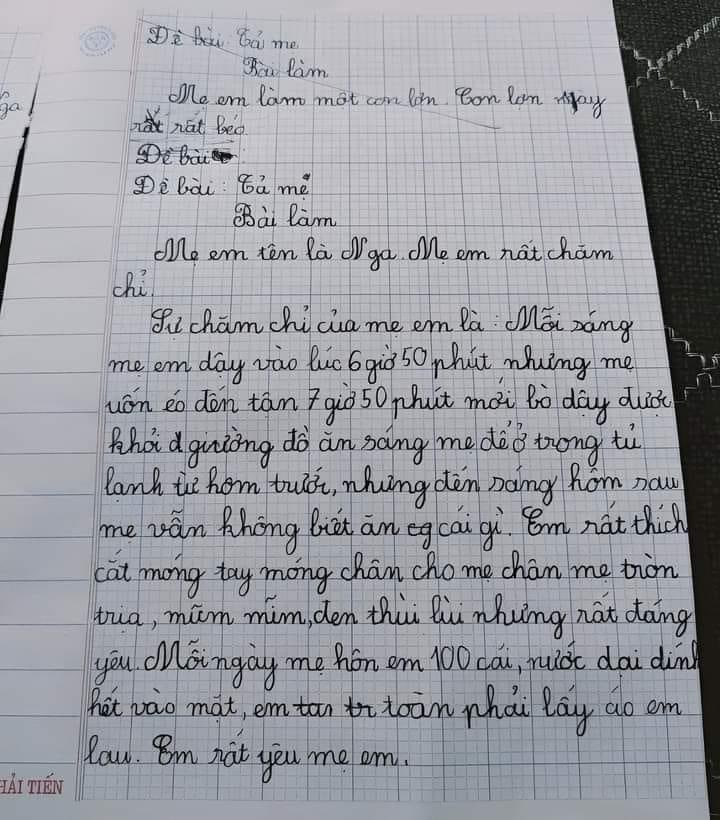 Đề bài: Tả mẹ
Bài làm
Mẹ em làm một con lợn. Con lợn này
rất rất béo
Đề bài
Đề bài: Tả mẹ
Bài làm
Mẹ em tên là Nga. Mẹ em rất chăm
chỉ.
Sự chăm chỉ của mẹ em là: Mỗi sáng
mẹ em dậy vào lúc 6 giờ 50 phút nhưng mẹ
uốn éo đến tận 7 giờ 50 phút mới bò dậy được
khỏi d giường đồ ăn sáng mẹ để ở trong tủ
lạnh từ hôm trước, nhưng đến sáng hôm sau
mẹ vẫn không biết ăn cg cái gì. Em rất thích
cắt móng tay móng chân cho mẹ chân mẹ tròn
trịa, mũm mĩm, đen thùi lùi nhưng rất đáng
yêu. Mỗi ngày mẹ hôn em 100 cái, nước dại dính
hết vào mặt, em tan tr toàn phải lấy áo em
lau. Em rất yêu mẹ em.
ga
HẢI TIẾN